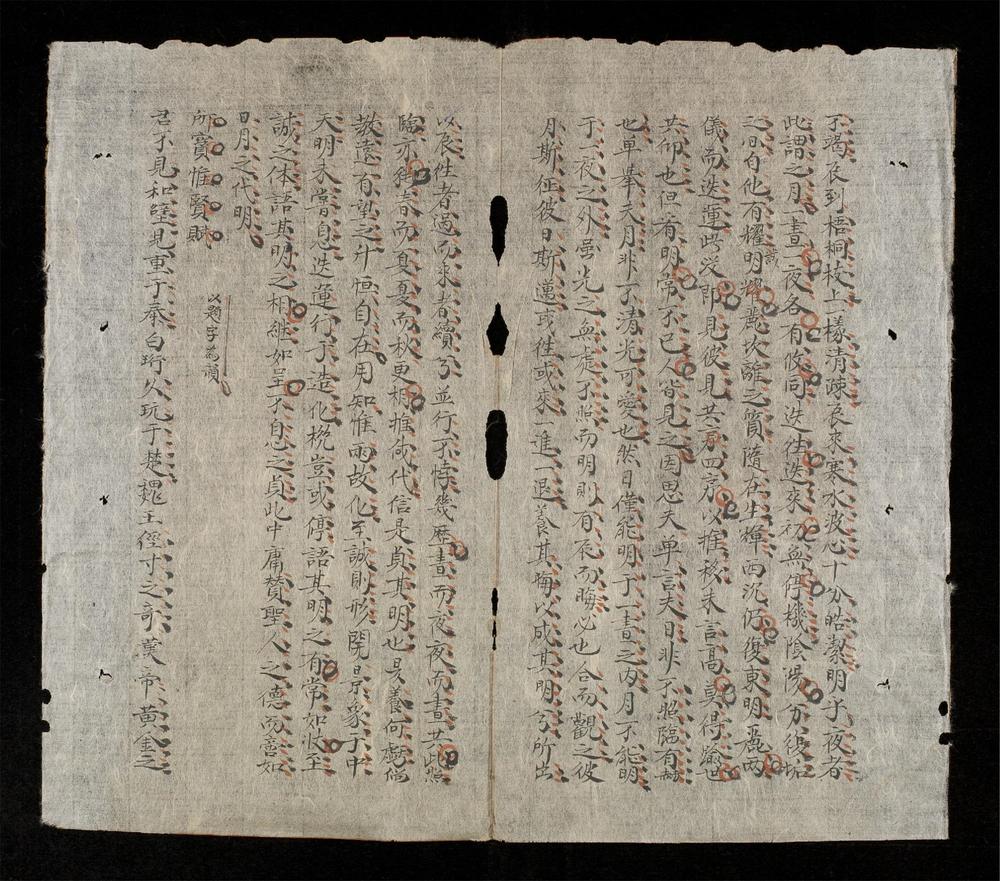 不竭哀到梧桐枝上樣清疎哀來寒水波心十分皓潔明乎夜者
此謂之月一晝一夜各有攸同迭往迭來初無停機陰陽分後垢
之心白他有耀明耀麗坎離之質隨在生輝西沉仍復東明麗兩
儀而迭運此沒即見彼見其方四序以推移未言高莫得踰世
共仰也但有明常不已人皆見之因思夫單言夫日非不照臨有赫
也單舉夫月非不清光可愛也然日僅能明于一晝之內月不能明
于一夜之外虽光之無處不照而明則有辰而晦必也合而觀之彼
月斯征彼日斯邁或往或來一進一退養其晦以成其明分所出
以辰往者過而來者續分並行不悖幾歷晝而夜夜而晝共此照
臨亦猶春而夏夏而秋更相推倘代信是貞其明也艮養何虧倘
教遠有望之升恒自在用知惟兩故化至誠則形闢景象于中
天明未嘗息迭運行于造化梲豈或停語其明之有常如快至
誠之休語其明之相繼如呈不息之貞此中庸贊聖人之德而言如
日月之代明
所寶惟賢賦
以題字為韻
君不見和璧見重于秦白珩久玩于楚魏王徑寸之奇漢帝黃金之